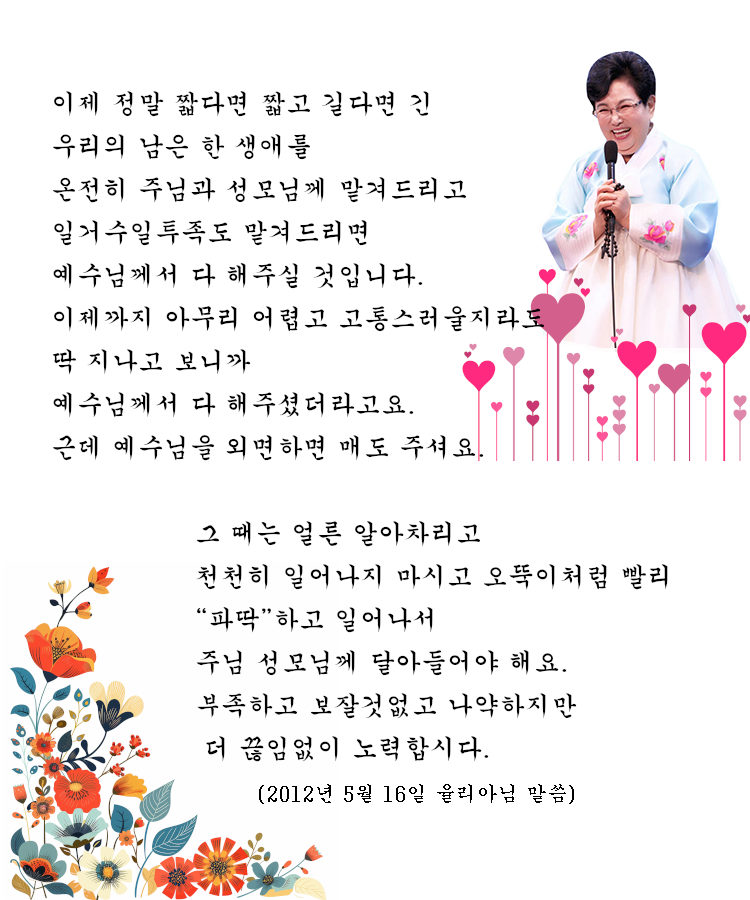 이제 정말 짧다면 짧고 길다면 긴
우리의 남은 한 생애를
온전히 주님과 성모님께 맡겨드리고
일거수일투족도 맡겨드리면
예수님께서 다 해주실 것입니다.
이제까지 아무리 어렵고 고통스러울지라도
딱 지나고 보니까
예수님께서 다 해주셨더라고요.
근데 예수님을 외면하면 매도 주셔요.
그 때는 얼른 알아차리고
천천히 일어나지 마시고 오뚝이처럼 빨리
“파딱”하고 일어나서
주님 성모님께 달아들어야 해요.
부족하고 보잘것없고 나약하지만
더 끊임없이 노력합시다.
(2012년 5월 16일 율리아님 말씀)